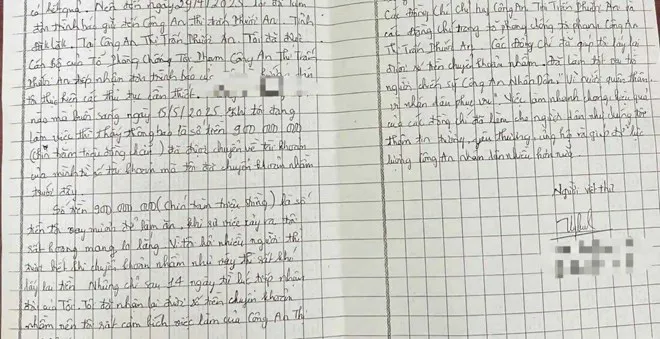 có kết quả. Nên đến ngày 29/4/2025 tôi đã làm
đơn trình báo gửi đến Công An thị trấn Phước An. Tỉnh
Đắk Lắk. Tại Công An Thị Trấn Phước An. Tôi đã được
Cán Bộ của Tổ Phòng Chống Tội Phạm Công An Thị Trấn
Phước An tiếp nhận đơn trình báo
thực hiện các thủ tục cần thiết.
nào mà buổi sáng ngày 15/5/2025. Khi tôi đang
làm việc thì thấy thông báo là số tiền 900 000 000
(Chín trăm triệu đồng chẵn) đã được chuyển về tài khoản
của mình từ số tài khoản mà tôi đã chuyển khoản nhầm
trước đây.
Số tiền 900 000 000 (Chín trăm triệu đồng) là số
tiền tôi vay mượn để làm ăn. Khi sự việc xảy ra tôi
rất hoang mang, lo lắng. Vì tôi hỏi nhiều người thì
được biết khi chuyển khoản nhầm như vậy thì rất khó
lấy lại tiền. Nhưng chỉ sau 14 ngày từ lúc tiếp nhận
đơn của Tôi. Tôi đã nhận lại được số tiền chuyển khoản
nhầm nên tôi rất cảm kích việc làm của Công An Thị
Các đồng chí Chỉ huy Công An Thị Trấn Phước An và
các đồng chí trong tổ phòng chống tội phạm Công An
Thị Trấn Phước An. Các đồng chí đã giúp tôi lấy lại
được số tiền chuyển khoản nhầm. Đã làm tốt vai trò
người chiến sỹ Công An Nhân Dân. "Vì nước quên thân,
vì nhân dân phục vụ". Việc làm nhanh chóng, hiệu quả
của các đồng chí đã làm cho người dân như chúng tôi
thêm tin tưởng, yêu thương, ủng hộ và giúp đỡ lực
lượng Công An nhân dân nhiều hơn nữa.
Người viết thư